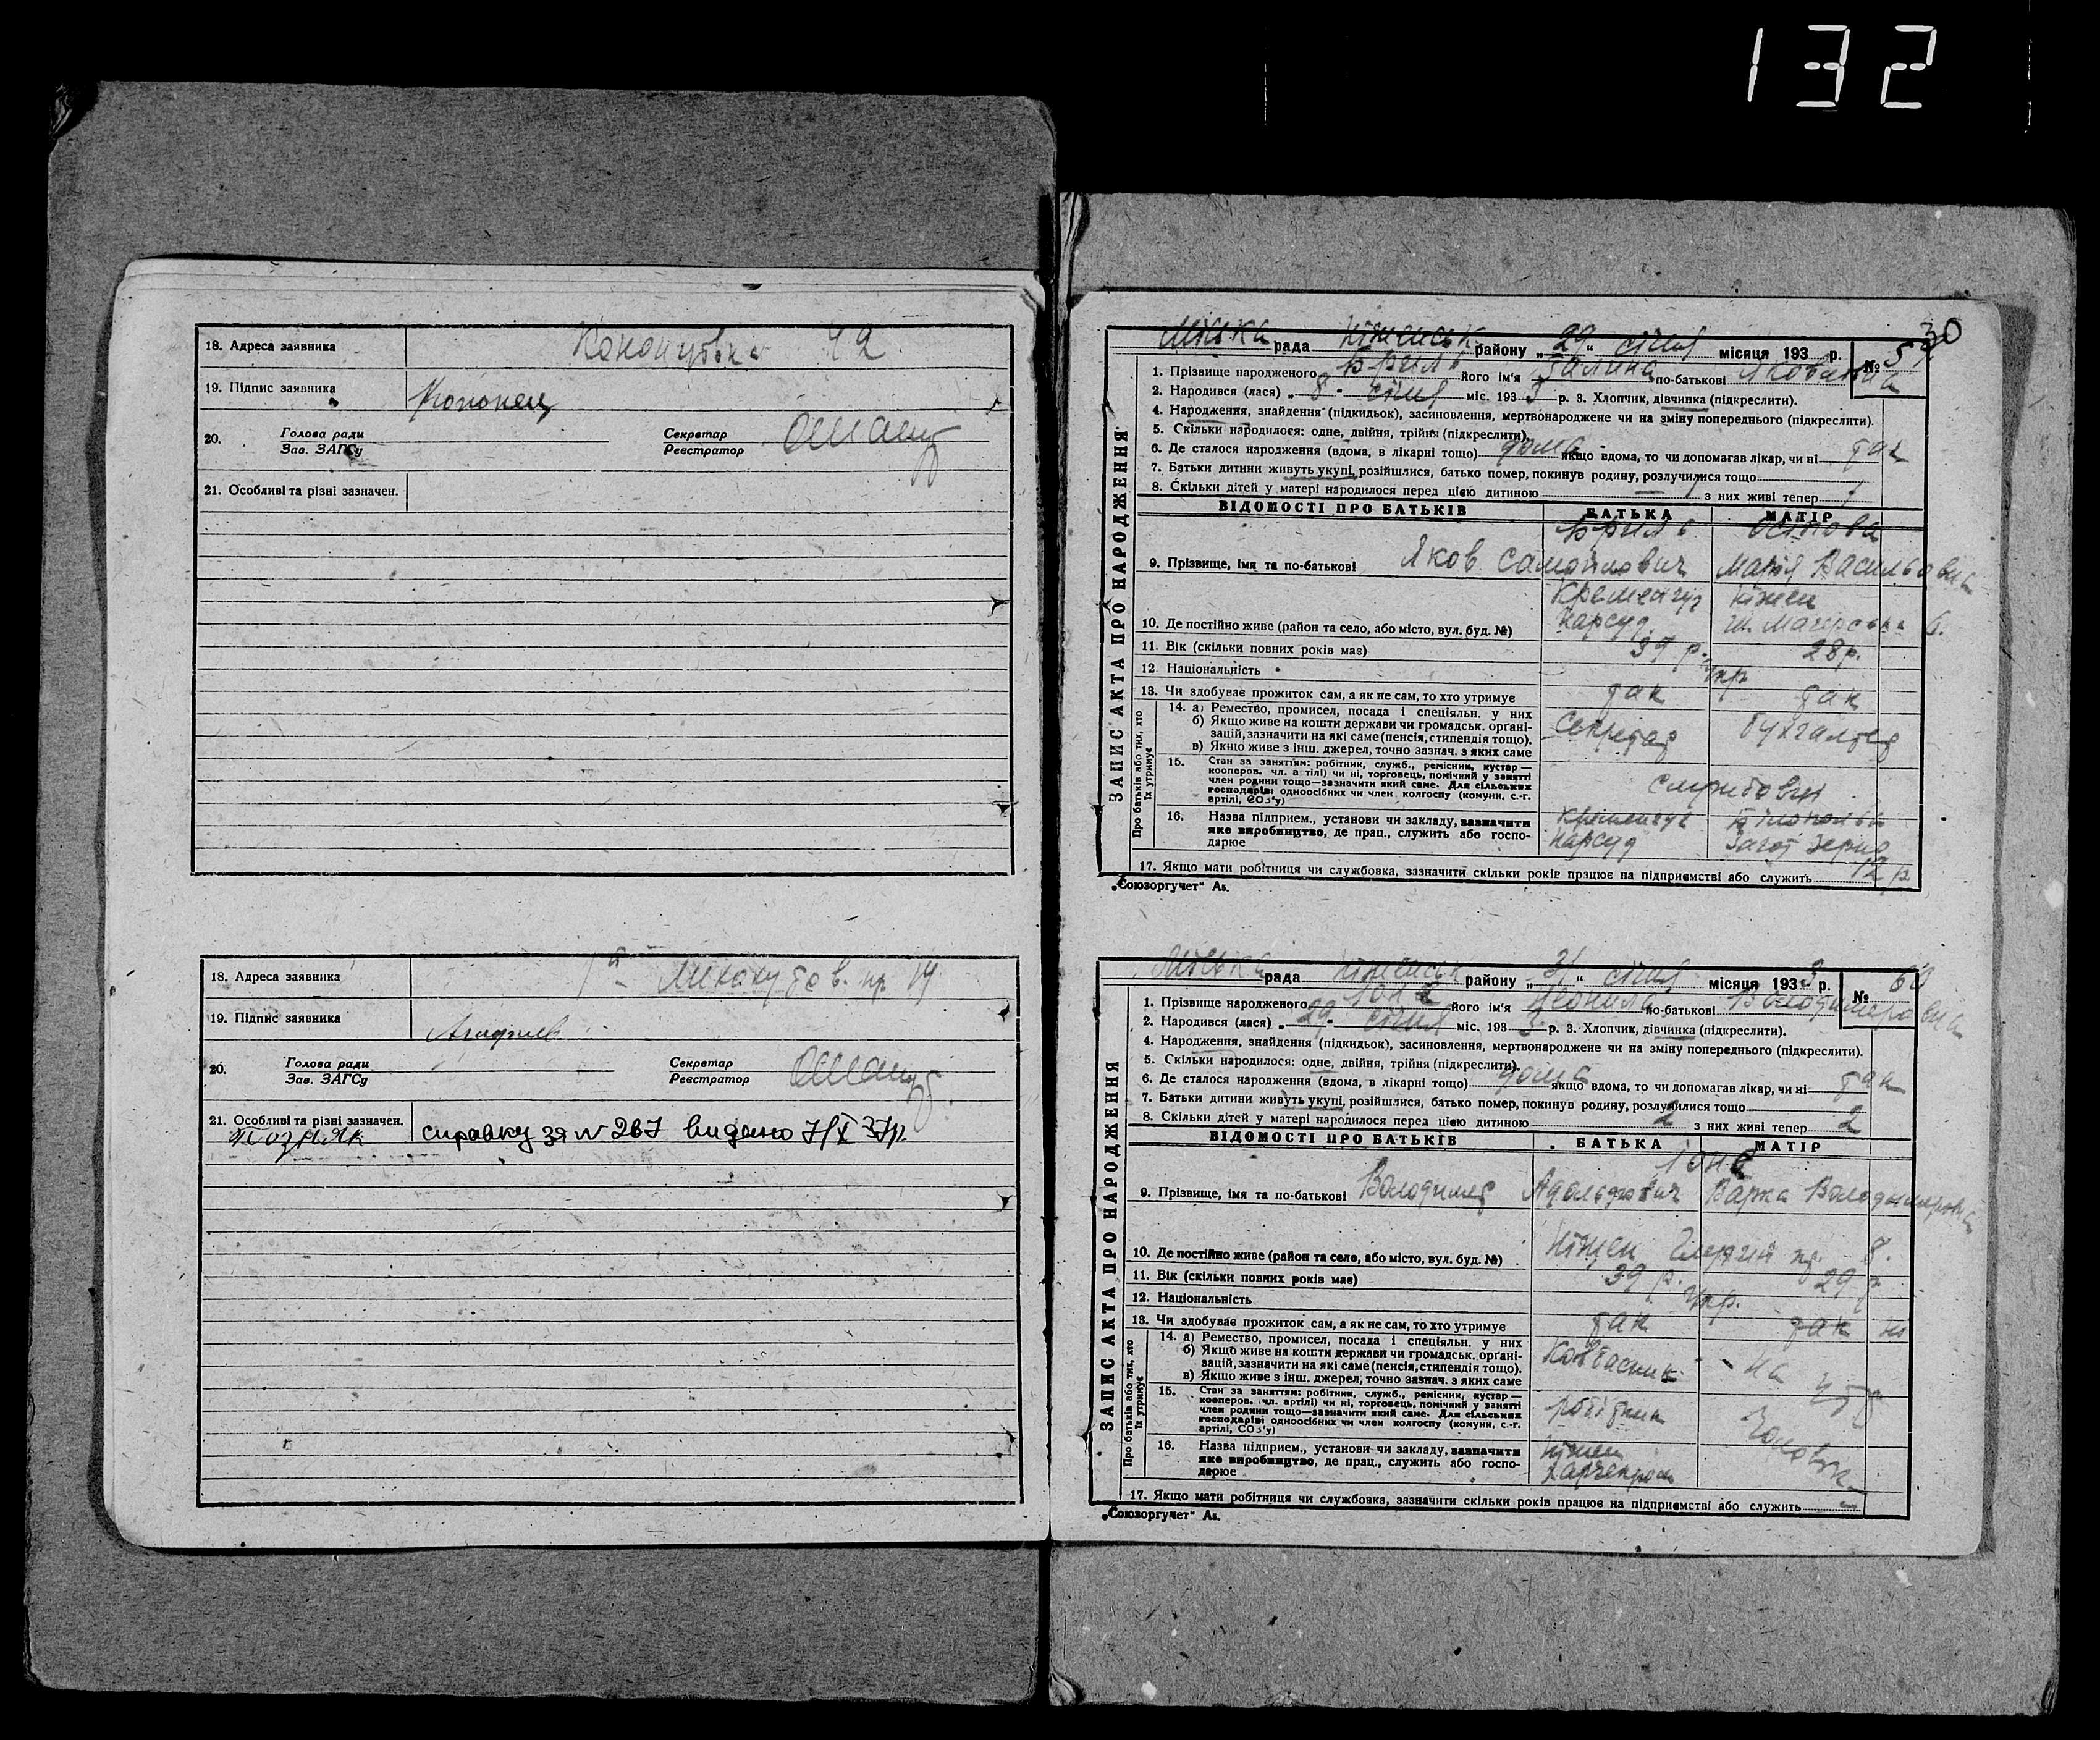 132
18. Адреса заявника Кононцовка 42
19. Підпис заявника Кононец
20. Голова ради Зав. ЗАГСу Секретар Реєстратор
21. Особливі та різні зазначен.
18. Адреса заявника пр 14
19. Підпис заявника
20. Голова ради Зав. ЗАГСу Секретар Реєстратор
21. Особливі та різні зазначен. справку за № 267 видано 7/X 37р.
Позняк
30
ЗАПИС АКТА ПРО НАРОДЖЕННЯ
Міська рада Ніженськ району „29“ січня місяця 193 р. № 59
1. Прізвище народженого Бриль його ім'я Галина по-батькові Яковлевна
2. Народився (лася) „8“ січня міс. 193 3 р. 3. Хлопчик, дівчинка (підкреслити).
4. Народження, знайдення (підкидьок), засиновлення, мертвонароджене чи на зміну попереднього (підкреслити).
5. Скільки народилося: одне, двійня, трійня (підкреслити).
6. Де сталося народження (вдома, в лікарні тощо) дома якщо вдома, то чи допомагав лікар, чи ні так
7. Батьки дитини живуть укупі, розійшлися, батько помер, покинув родину, розлучилися тощо
8. Скільки дітей у матері народилося перед цією дитиною 1 з них живі тепер 1
ВІДОМОСТІ ПРО БАТЬКІВ БАТЬКА МАТІР
Бриль Осипова
9. Прізвище, імя та по-батькові Яков Самойлович Марія Васильовна
Кременчуг Ніжен
10. Де постійно живе (район та село, або місто, вул. буд. №) Нарсуд 6.
11. Вік (скільки повних років має) 39 р. 28 р.
12. Національність укр
13. Чи здобуває прожиток сам, а як не сам, то хто утримує так так
Про батьків або тих, хто їх утримує
14. а) Ремество, промисел, посада і спеціяльн. у них
б) Якщо живе на кошти держави чи громадськ. орґані-
зацій, зазначити на які саме (пенсія, стипендія тощо). Секретар Бухгалтер
в) Якщо живе з інш. джерел, точно зазнач. з яких саме
15. Стан за заняттям: робітник, служб., ремісник, кустар—
кооперов. чл. артілі) чи ні, торговець, помічний у занятті
член родини тощо—зазначити який саме. Для сільських
господарів: одноосібних чи член колгоспу (комуни, с.-г. службовці
артілі, СОЗ'у)
16. Назва підприєм., установи чи закладу, зазначити Кременчуг
яке виробництво, де прац., служить або госпо- Нарсуд Загот Зерно
дарює
17. Якщо мати робітниця чи службовка, зазначити скільки років працює на підприємстві або служить 12 р
„Союзоргучет“ Ав.
ЗАПИС АКТА ПРО НАРОДЖЕННЯ
Міська рада Ніженськ району „31“ січня місяця 193 3 р. № 60
1. Прізвище народженого Юне його ім'я Неоніла по-батькові Володимировна
2. Народився (лася) „29“ січня міс. 193 3 р. 3. Хлопчик, дівчинка (підкреслити).
4. Народження, знайдення (підкидьок), засиновлення, мертвонароджене чи на зміну попереднього (підкреслити).
5. Скільки народилося: одне, двійня, трійня (підкреслити).
6. Де сталося народження (вдома, в лікарні тощо) дома якщо вдома, то чи допомагав лікар, чи ні так
7. Батьки дитини живуть укупі, розійшлися, батько помер, покинув родину, розлучилися тощо
8. Скільки дітей у матері народилося перед цією дитиною 2 з них живі тепер 2
ВІДОМОСТІ ПРО БАТЬКІВ БАТЬКА МАТІР
Юне
9. Прізвище, імя та по-батькові Володимер Адольфович Варка Володимировна
10. Де постійно живе (район та село, або місто, вул. буд. №) Ніжен 8.
11. Вік (скільки повних років має) 39 р. 29 р.
12. Національність укр.
13. Чи здобуває прожиток сам, а як не сам, то хто утримує так так ні
Про батьків або тих, хто їх утримує
14. а) Ремество, промисел, посада і спеціяльн. у них
б) Якщо живе на кошти держави чи громадськ. орґані-
зацій, зазначити на які саме (пенсія, стипендія тощо). Ковбасник на утр
в) Якщо живе з інш. джерел, точно зазнач. з яких саме
15. Стан за заняттям: робітник, служб., ремісник, кустар—
кооперов. чл. артілі) чи ні, торговець, помічний у занятті
член родини тощо—зазначити який саме. Для сільських робітник
господарів одноосібних чи член колгоспу (комуни, с.-г.
артілі, СОЗ'у)
16. Назва підприєм., установи чи закладу, зазначити Ніжен
яке виробництво, де прац., служить або госпо-
дарює
17. Якщо мати робітниця чи службовка, зазначити скільки років працює на підприємстві або служить
„Союзоргучет“ Ав.